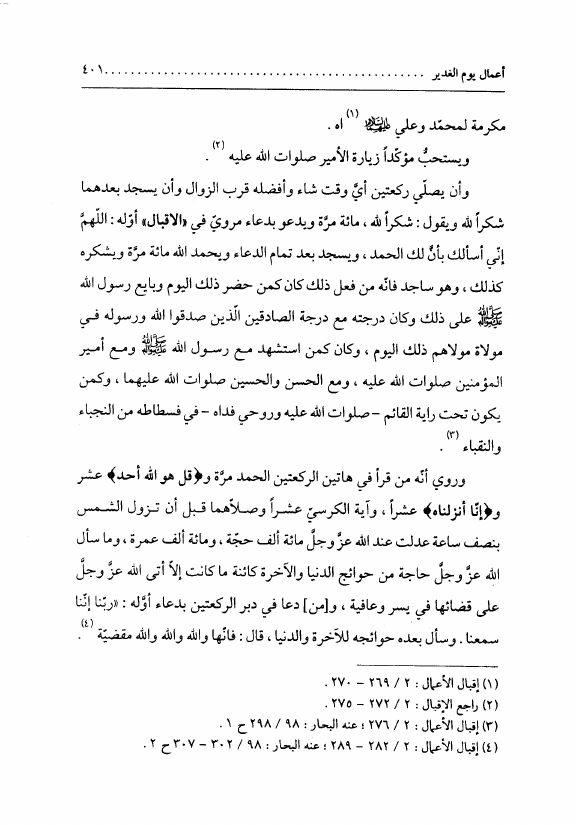 أعمال يوم الغدير ................................................ ٤٠١
مكرمة لمحمّد وعلي عليهما السلام (١) اه .
ويستحبُّ مؤكّداً زيارة الأمير صلوات الله عليه (٢) .
وأن يصلّي ركعتين أيَّ وقت شاء وأفضله قرب الزوال وأن يسجد بعدهما
شكراً لله ويقول : شكراً لله ، مائة مرَّة ويدعو بدعاء مرويّ في «الاقبال» أوّله : اللّهمَّ
إنّي أسألك بأنَّ لك الحمد ، ويسجد بعد تمام الدعاء ويحمد الله مائة مرَّة ويشكره
كذلك ، وهو ساجد فانّه من فعل ذلك كان كمن حضر ذلك اليوم وبايع رسول الله
ﷺ على ذلك وكان درجته مع درجة الصادقين الّذين صدقوا الله ورسوله في
مولاة مولاهم ذلك اليوم ، وكان كمن استشهد مع رسول الله ﷺ ومع أمير
المؤمنين صلوات الله عليه ، ومع الحسن والحسين صلوات الله عليهما ، وكمن
يكون تحت راية القائم –صلوات الله عليه وروحي فداه – في فسطاطه من النجباء
والنقباء (٣) .
وروي أنّه من قرأ في هاتين الركعتين الحمد مرَّة و﴿قل هو الله أحد﴾ عشر
و﴿إنّا أنزلناه﴾ عشراً ، وآية الكرسيّ عشراً وصلاّهما قبل أن تزول الشمس
بنصف ساعة عدلت عند الله عزَّ وجلَّ مائة ألف حجّة ، ومائة ألف عمرة ، وما سأل
الله عزَّ وجلَّ حاجة من حوائج الدنيا والآخرة كائنة ما كانت إلاّ أتى الله عزَّ وجلَّ
على قضائها في يسر وعافية ، و[من] دعا في دبر الركعتين بدعاء أوَّله : «ربّنا إنّنا
سمعنا . وسأل بعده حوائجه للآخرة والدنيا ، قال : فانّها والله والله والله مقضيّة (٤) .
(١) إقبال الأعمال : ٢ / ٢٦٩ – ٢٧٠ .
(٢) راجع الإقبال : ٢ / ٢٧٢ – ٢٧٥ .
(٣) إقبال الأعمال : ٢ / ٢٧٦ ؛ عنه البحار : ٩٨ / ٢٩٨ ح ١ .
(٤) إقبال الأعمال : ٢ / ٢٨٢ – ٢٨٩ ؛ عنه البحار : ٩٨ / ٣٠٢ – ٣٠٧ ح ٢ .